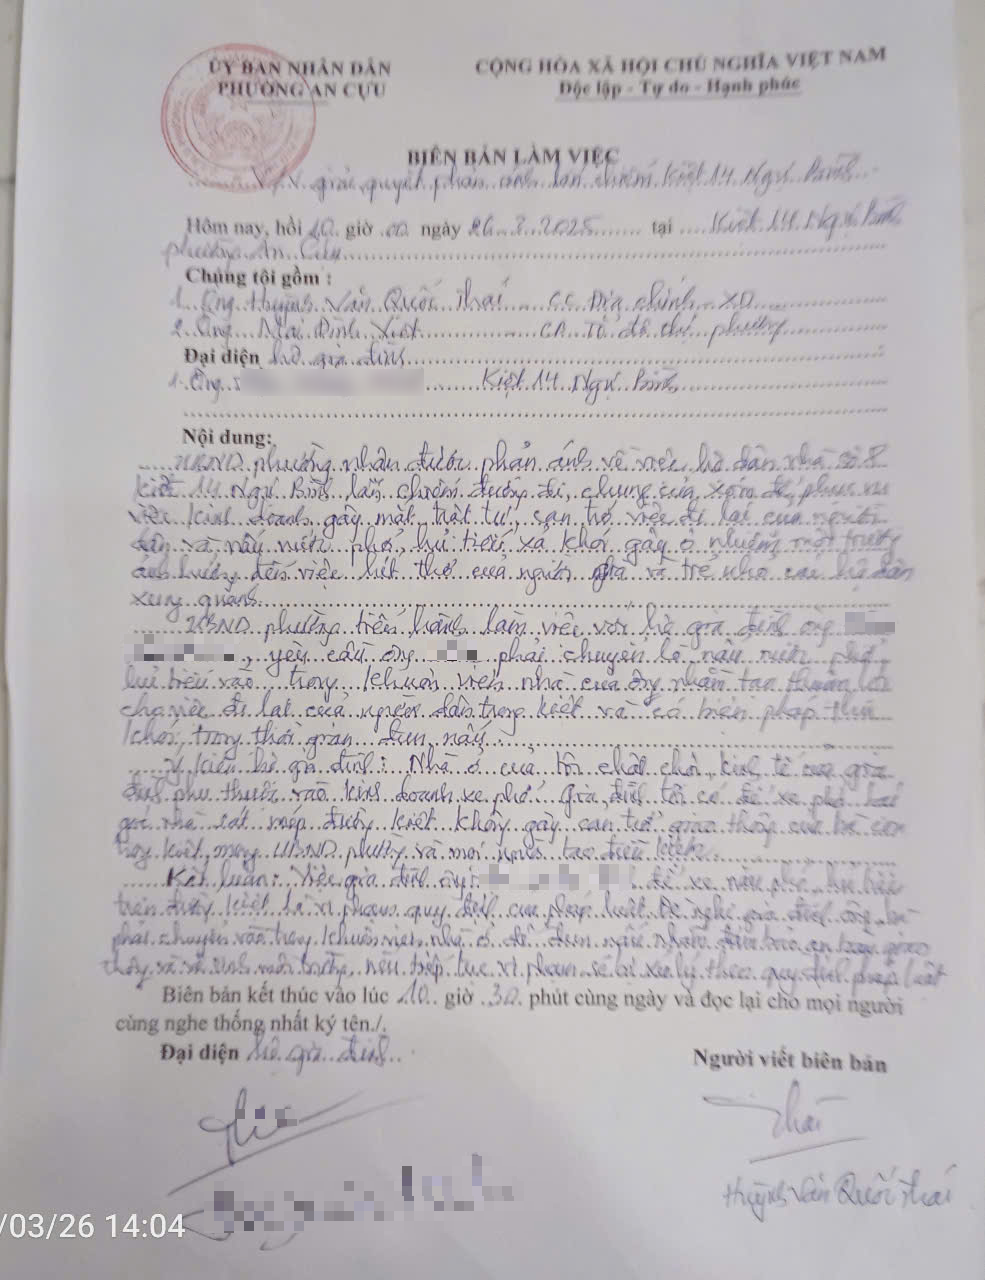 ỦY BAN NHÂN DÂN
PHƯỜNG AN CỰU
CỘNG HÒA XÃ HỘI CHỦ NGHĨA VIỆT NAM
Độc lập - Tự do - Hạnh phúc
BIÊN BẢN LÀM VIỆC
V/v giải quyết phản ánh lấn chiếm Kiệt 14 Ngự Bình
Hôm nay, hồi 10 giờ 00 ngày 26.3.2025 tại Kiệt 14 Ngự Bình
phường An Cựu
Chúng tôi gồm :
1. Ông Huỳnh Văn Quốc Thái CC Địa chính - XD
2. Ông Mai Đình Việt CA Tổ đô thị phường
Đại diện hộ gia đình
1. Ông Kiệt 14 Ngự Bình
Nội dung:
UBND phường nhận được phản ánh về việc hộ dân nhà số 8
kiệt 14 Ngự Bình lấn chiếm đường đi chung của xóm để phục vụ
việc kinh doanh gây mất trật tự, cản trở việc đi lại của người
dân và nấu nước phở, hủ tiếu xả khói gây ô nhiễm môi trường
ảnh hưởng đến việc hít thở của người già và trẻ nhỏ các hộ dân
xung quanh.
UBND phường tiến hành làm việc với hộ gia đình ông
, yêu cầu ông phải chuyển lò nấu nước phở,
hủ tiếu vào trong khuôn viên nhà của ông nhằm tạo thuận lợi
cho việc đi lại của người dân trong kiệt và có biện pháp thu
khói trong thời gian đun nấu.
Ý kiến hộ gia đình: Nhà ở của tôi chật chội, kinh tế của gia
đình phụ thuộc vào kinh doanh xe phở. Gia đình tôi có để xe phở
góc nhà sát mép đường kiệt không gây cản trở giao thông của bà con
trong kiệt, mong UBND phường và mọi người tạo điều kiện.
Kết luận: Việc gia đình ông để xe nấu phở, hủ tiếu
trên đường kiệt là vi phạm quy định của pháp luật. Đề nghị gia đình ông
phải chuyển vào trong khuôn viên nhà ở để đun nấu nhằm đảm bảo an toàn giao
thông và vệ sinh môi trường, nếu tiếp tục vi phạm sẽ bị xử lý theo quy định pháp luật
Biên bản kết thúc vào lúc 10 giờ 30 phút cùng ngày và đọc lại cho mọi người
cùng nghe thống nhất ký tên./.
Đại diện hộ gia đình
Người viết biên bản
Thái
Huỳnh Văn Quốc Thái
/03/26 14:04